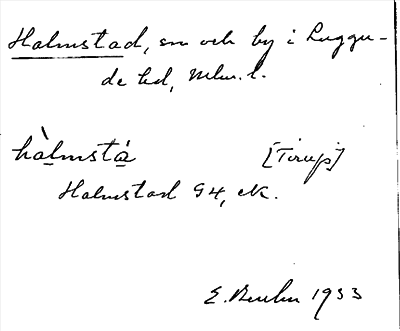 Halmstad, sn och by i Luggu-
de hd, Mlm. l.
hàlmstá [Tirup]
Halmstad G4, ek.
E. 1933